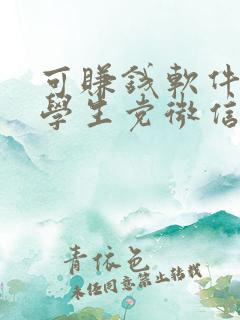 可賺錢軟件
學生党微信
青依色
未经同意禁止转载